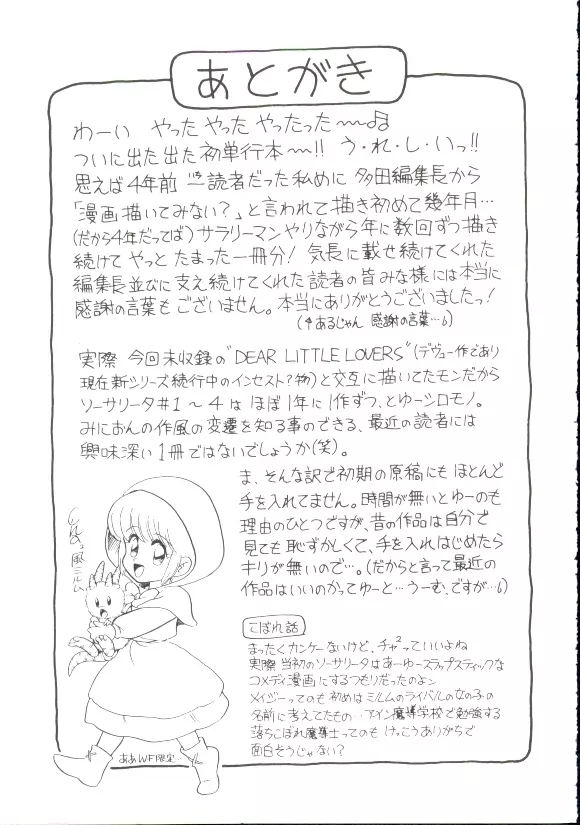 あとがき
わーい やった やった やったった〜〜♫
ついに出た出た初単行本〜〜!! う・れ・し・いっ!!
思えば4年前 一読者だった私めに 多田編集長から
「漫画描いてみない?」と言われて描き初めて幾年月…
(だから4年だってば)サラリーマンやりながら年に数回ずつ描き
続けて やっと たまった一冊分! 気長に載せ続けてくれた
編集長並びに支え続けてくれた読者の皆みな様には本当に
感謝の言葉もございません。本当にありがとうございましたっ!
(↑あるじゃん 感謝の言葉…6)
実際 今回未収録の"DEAR LITTLE LOVERS"(デヴュー作であり
現在新シリーズ続行中のインセスト?物)と交互に描いてたモンだから
ソーサリータ#1〜4は ほぼ1年に1作ずつ、とゆーシロモノ。
みにおんの作風の変遷を知る事のできる、最近の読者には
興味深い1冊ではないでしょうか(笑)。
ま、そんな訳で初期の原稿にも ほとんど
手を入れてません。時間が無いとゆーのも
理由のひとつですが、昔の作品は自分で
見ても恥ずかしくて、手を入れはじめたら
キリが無いので…。(だからと言って最近の
作品はいいのかってゆーと…うーむ、ですが…6)
こぼれ話
まったくカンケーないけど、チャ²っていいよね
実際 当初のソーサリータはあーゆースラップスティックな
コメディ漫画にするつもりだったのよン
メイジーってのも 初めはミルムのライバルの女の子の
名前に考えてたもの アイン魔導学校で勉強する
落ちこぼれ魔導士ってのも けっこうありがちで
面白そうじゃない?
風ミルム
ああWF限定…